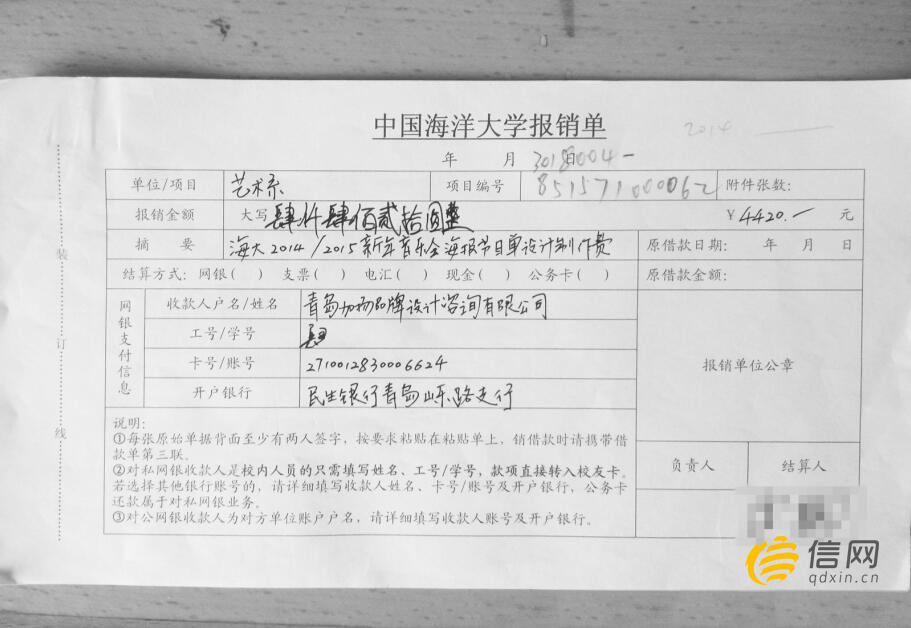 中国海洋大学报销单
2014
年 月 日
3018004-
单位/项目 艺术系 项目编号 851571000062 附件张数:
报销金额 大写 肆仟肆佰贰拾圆整 ¥4420.- 元
摘 要 海大2014/2015新年音乐会海报节目单设计制作费 原借款日期: 年 月 日
结算方式: 网银( ) 支票( ) 电汇( ) 现金( ) 公务卡( ) 原借款金额:
网银支付信息
收款人户名/姓名 青岛加扬品牌设计咨询有限公司
工号/学号
卡号/账号 2710012830006624
开户银行 民生银行青岛山东路支行
报销单位公章
说明:
①每张原始单据背面至少有两人签字，按要求粘贴在粘贴单上，销借款时请携带借
款单第三联。
②对私网银收款人是校内人员的只需填写姓名、工号/学号，款项直接转入校友卡。
若选择其他银行账号的，请详细填写收款人姓名、卡号/账号及开户银行，公务卡
还款属于对私网银业务。
③对公网银收款人为对方单位账户户名，请详细填写收款人账号及开户银行。
负责人 结算人
装
订
线
信网
qdxin.cn